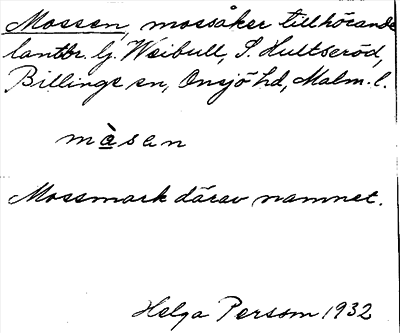 Mossen, mossåker tillhörande
lantbr. Hj. Weibull, S. Hultseröd,
Billinge sn, Onsjö hd, Malm. l.
måsan
Mossmark därav namnet.
Helga Persson 1932